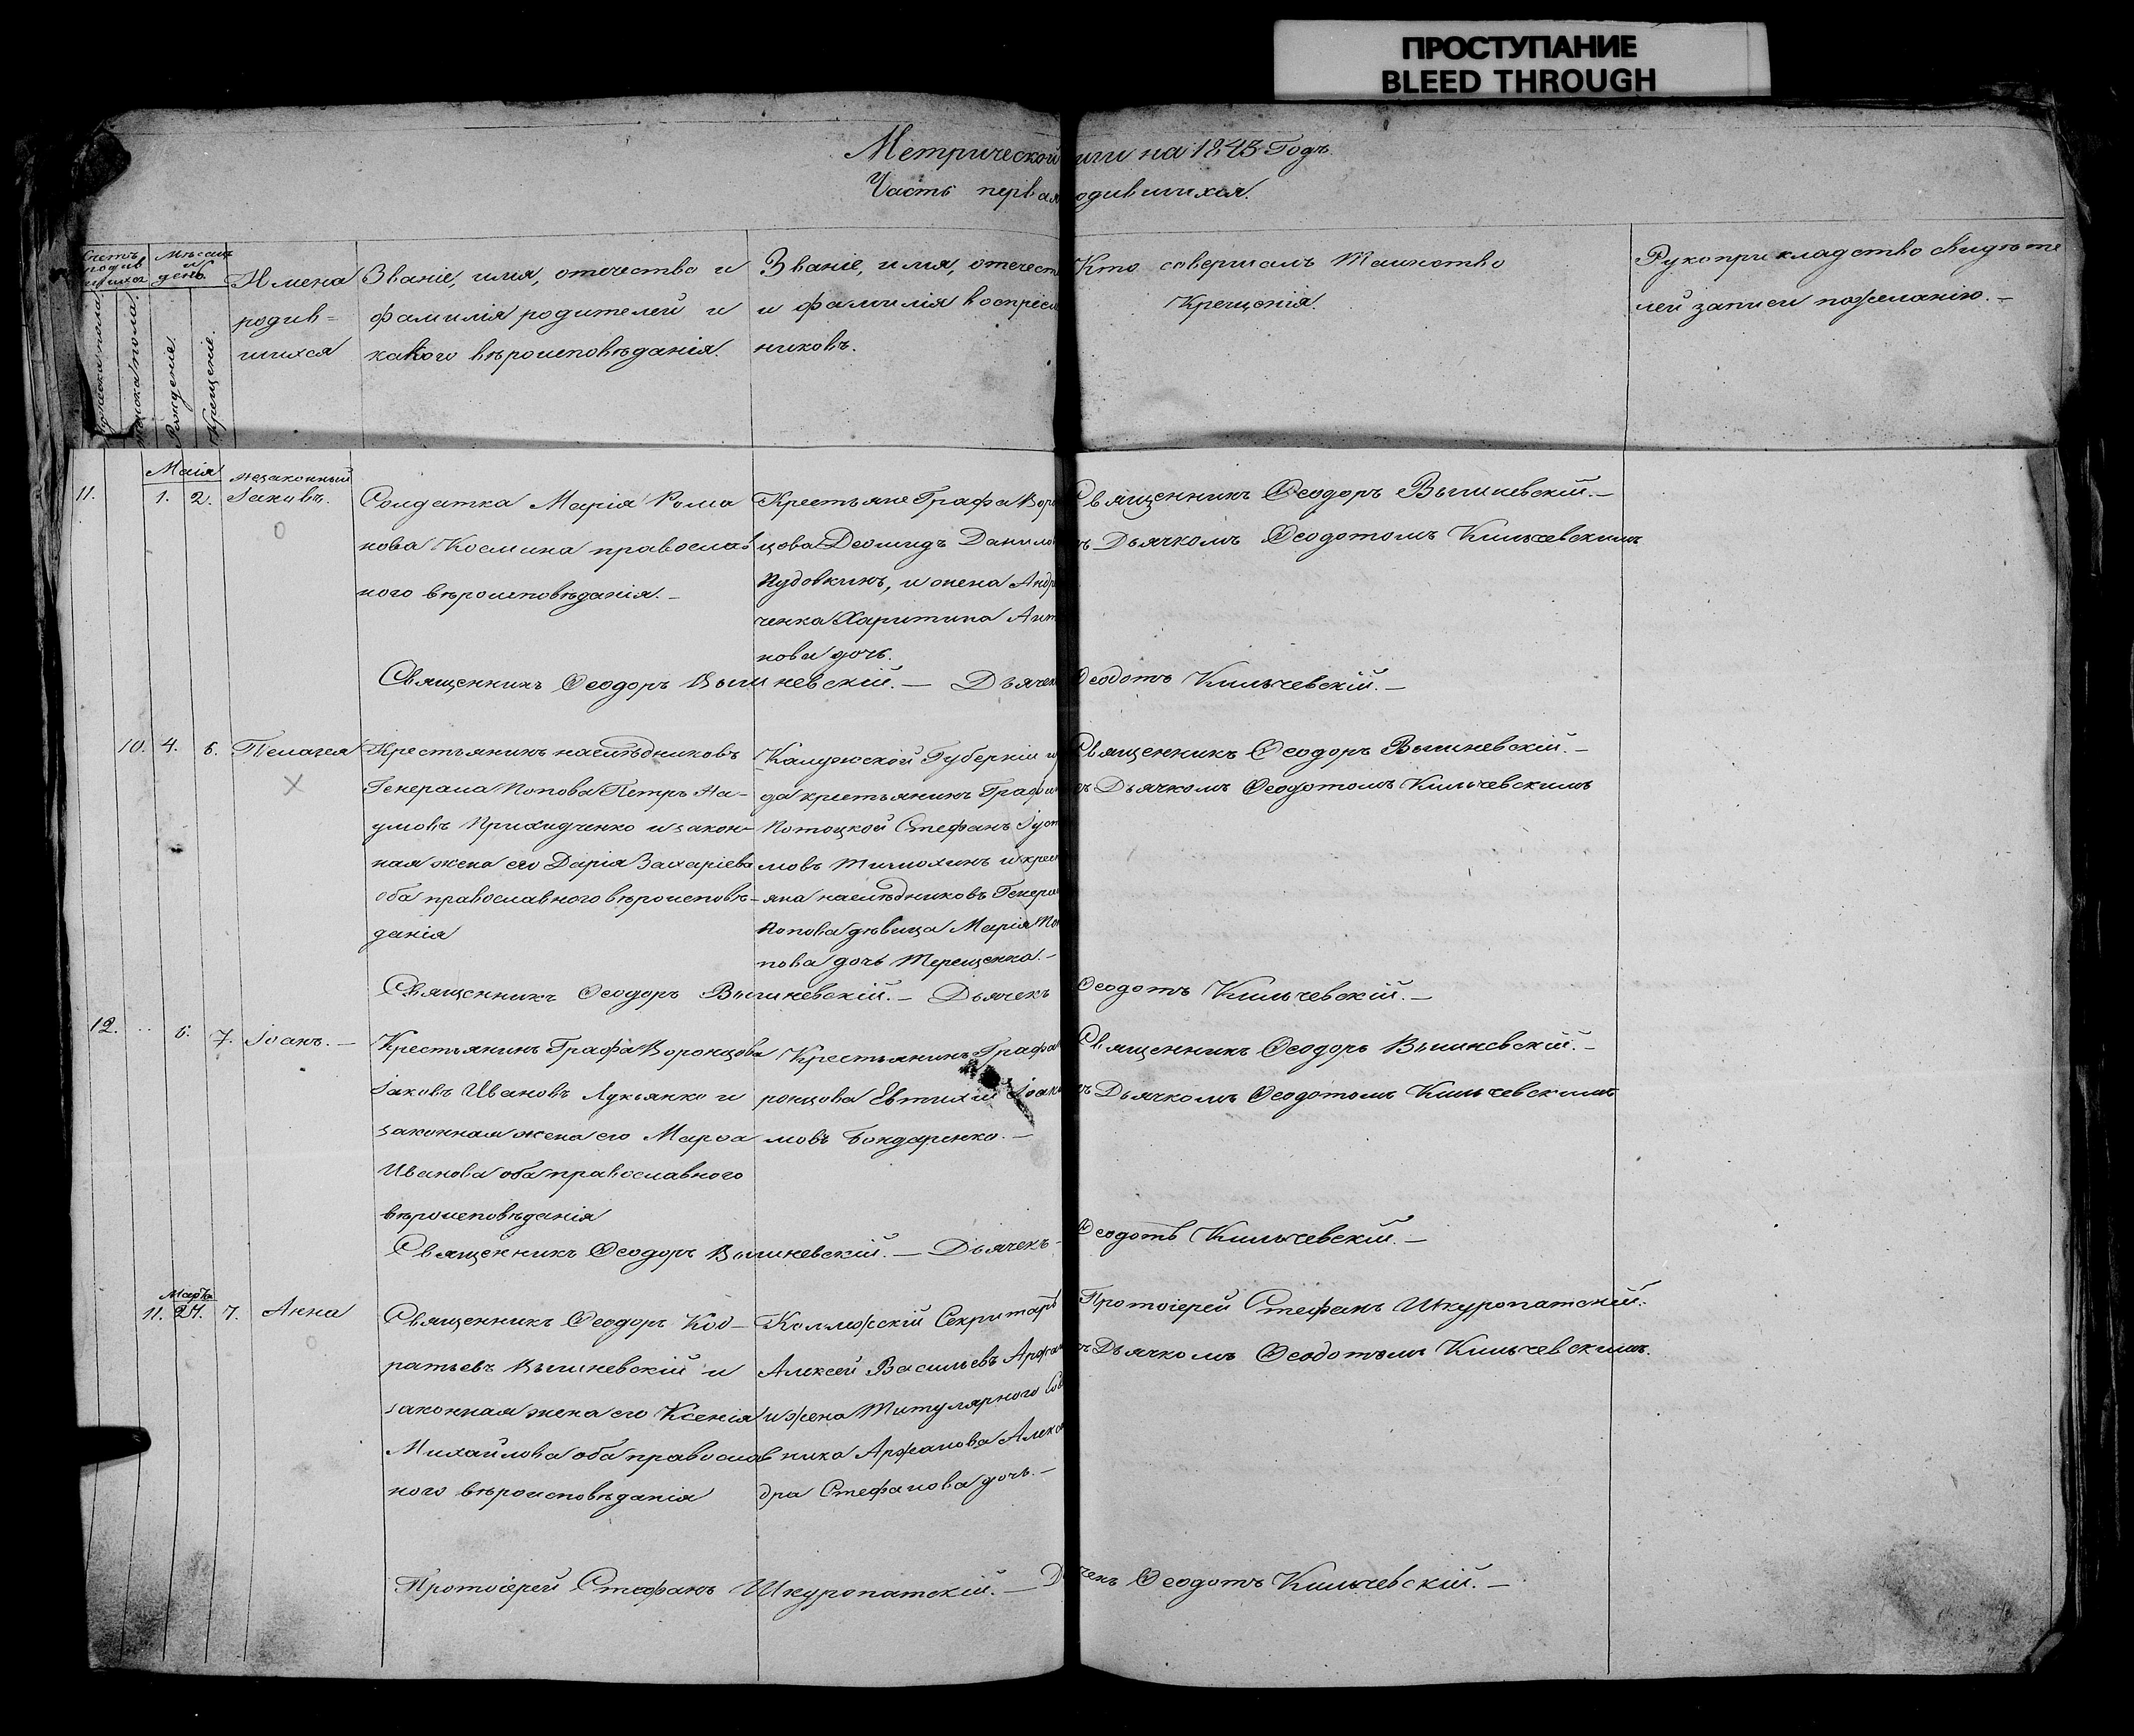 ПРОСТУПАНИЕ
BLEED THROUGH
Метрической иги на 1843 Годъ
Часть первая одившихся.
Счетъ родив шихся
Мѣсяцъ и день.
мужеска пола.
женска пола.
Рожденіе.
Крещеніе.
Имена
родив=
шихся
Званіе, имя, отечество и
фамилія родителей и
какого вѣроисповѣданія.
Званіе, имя, отечест
и фамилія воспріем
никовъ.
Кто совершалъ Таинство
Крещенія.
Рукоприкладство свидѣте
лей записи по желанію. –
Маія
11. 1. 2.
незаконный
Іаковъ.
Солдатка Марія Рома
нова Космина православ
ного вѣроисповѣданія. –
Крестьяне Графа Ворон
цова Деомидъ Данилов
Пудовкинъ, и жена Андр
ченка Харитина Ант
нова дочь.
Священникъ Ѳеодоръ Вышневскій. –
ъ Дьячкомъ Ѳеодотомъ Кильчевскимъ
Священникъ Ѳеодоръ Вышневскій. – Дьячек Ѳеодотъ Кильчевскій. –
10. 4. 6. Пелагея
Крестьянинъ наслѣдниковъ
Генерала Попова Петръ На-
умовъ Приходченко и закон-
ная жена его Дарія Захаріева
оба православного вѣроисповѣ-
данія
Калужской Губерніи
да крестьянинъ Графи
Потоцкой Стефанъ
мовъ Тимохинъ и крес
яна наслѣдниковъ Генера
Попова дѣвица Марія
пова дочь Терещенко. –
Священникъ Ѳеодоръ Вышневскій. –
ъ Дьячкомъ Ѳеодотомъ Кильчевскимъ
Священникъ Ѳеодоръ Вышневскій. – Дьячекъ Ѳеодотъ Кильчевскій. –
12. .. 6. 7. Іоанъ. –
Крестьянинъ Графа Воронцова
Іаковъ Ивановъ Лукьянко и
законная жена его Марѳа
Иванова оба православного
вѣроисповѣданія
Крестьянинъ Графа
ронцова Евтихій Іоаки
мовъ Бондаренко. –
Священникъ Ѳеодоръ Вышневскій. –
ъ Дьячкомъ Ѳеодотомъ Кильчевскимъ
Священникъ Ѳеодоръ Вышневскій. – Дьячекъ Ѳеодотъ Кильчевскій. –
Марта
11. 27. 7. Анна
Священникъ Ѳеодоръ Код-
ратьевъ Вышневскій и
законная жена его Ксенія
Михайлова оба православ
ного вѣроисповѣданія
Коллежскій Секритарь
Алексей Васильевъ Аржан
и жена Титулярного Сов
ника Аржанова Алекса
дра Стефанова дочь. –
Протоіерей Стефанъ Шкуропатскій.
ъ Дьячкомъ Ѳеодотомъ Кильчевскимъ.
Протоіерей Стефанъ Шкуропатскій. – Дьячекъ Ѳеодотъ Кильчевскій. –